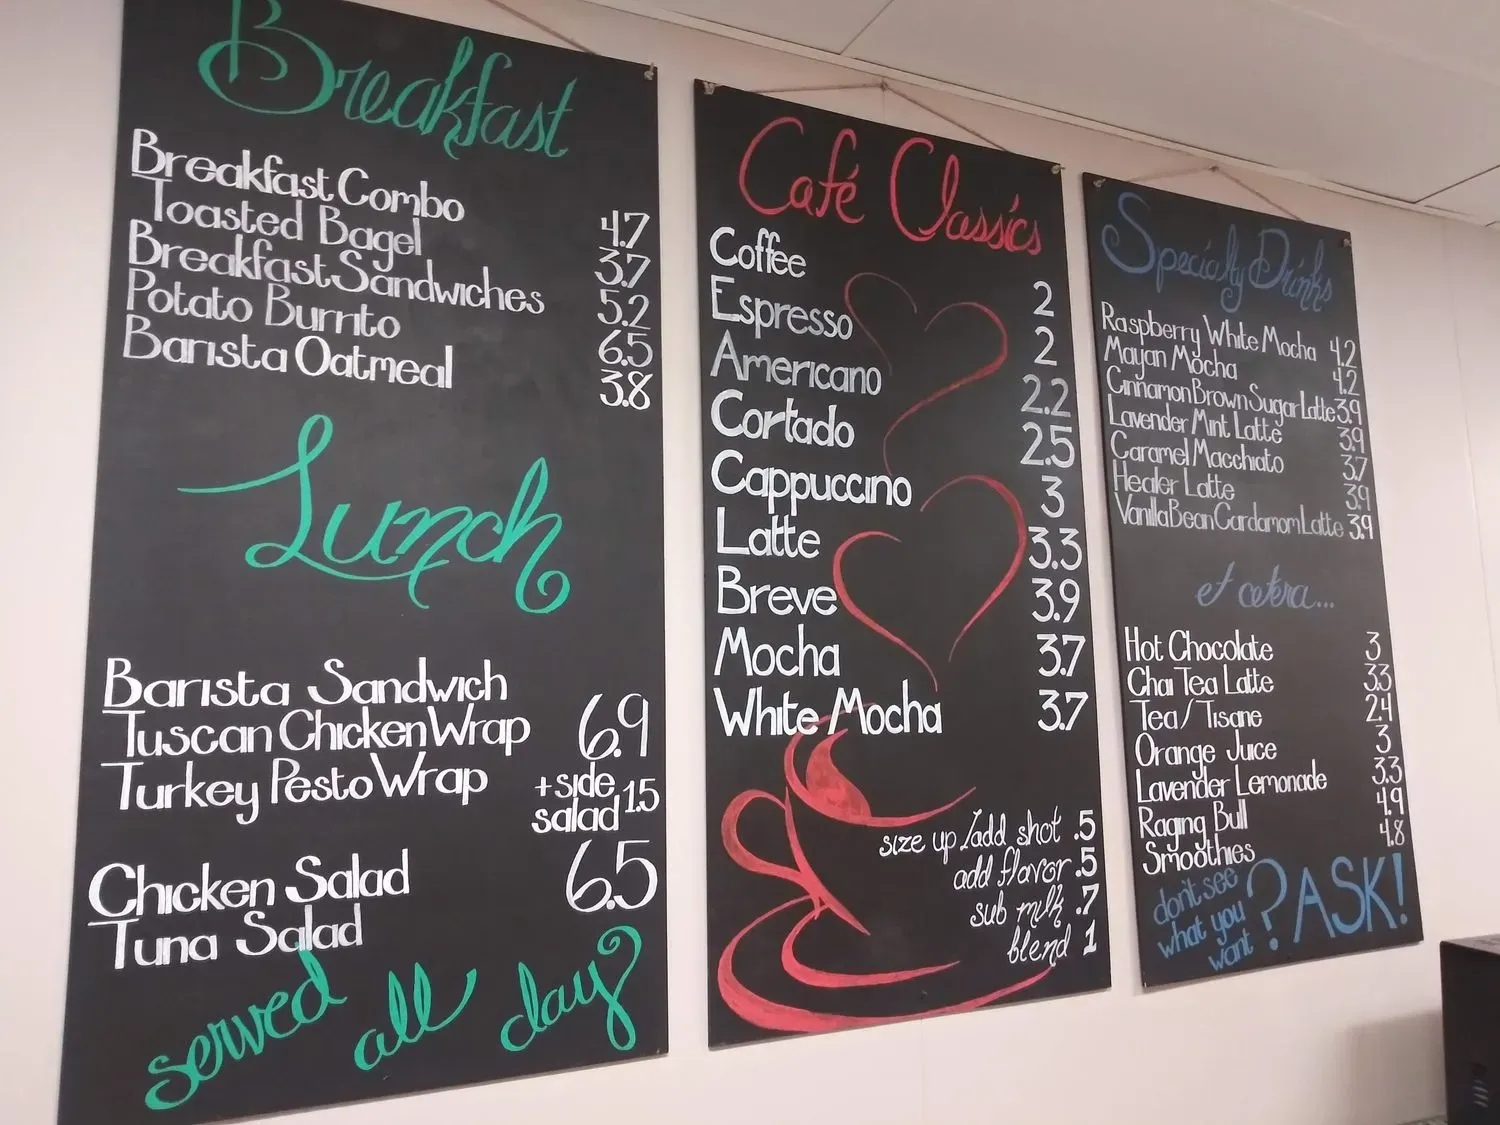 Breakfast
Breakfast Combo 4.7
Toasted Bagel 3.7
Breakfast Sandwiches 5.2
Potato Burrito 6.5
Barista Oatmeal 3.8
Lunch
Barista Sandwich
Tuscan Chicken Wrap 6.9
Turkey Pesto Wrap
+side salad 1.5
Chicken Salad 6.5
Tuna Salad
served all day
Café Classics
Coffee 2
Espresso 2
Americano 2.2
Cortado 2.5
Cappuccino 3
Latte 3.3
Breve 3.9
Mocha 3.7
White Mocha 3.7
size up/add shot .5
add flavor .5
sub milk .7
blend 1
Specialty Drinks
Raspberry White Mocha 4.2
Mayan Mocha 4.2
Cinnamon Brown Sugar Latte 3.9
Lavender Mint Latte 3.9
Caramel Macchiato 3.7
Healer Latte 3.9
Vanilla Bean Cardamom Latte 3.9
et cetera...
Hot Chocolate 3
Chai Tea Latte 3.3
Tea/Tisane 2.4
Orange Juice 3
Lavender Lemonade 3.3
Raging Bull 4.9
Smoothies 4.8
don't see
what you
want ? ASK!